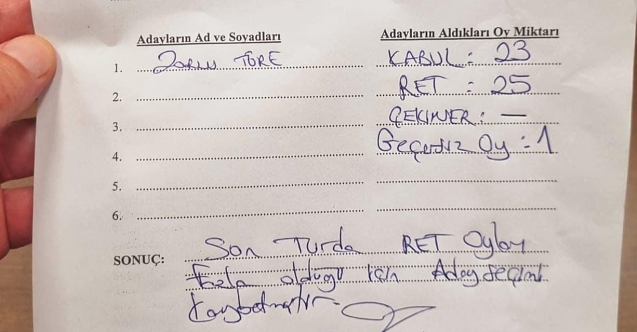 Adayların Ad ve Soyadları
Adayların Aldıkları Oy Miktarı
1. Zorlu TÖRE
KABUL : 23
2.
RET : 25
3.
ÇEKİMSER : —
4.
Geçersiz Oy : 1
5.
6.
SONUÇ: Son Turda RET Oyları
Fazla olduğu için Aday seçimi
kaybetmiştir.